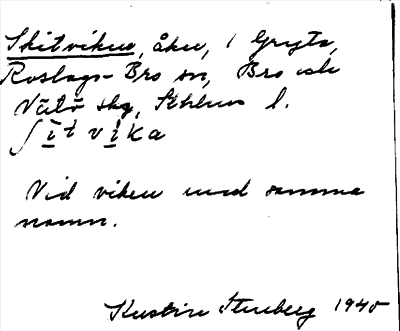 Skitviken, åker, i Gryta,
Roslags-Bro sn, Bro och
Vätö skg, Sthlms l.
ʃi̲t vi̲ka
Vid viken med samma
namn.
Kerstin Stenberg 1940